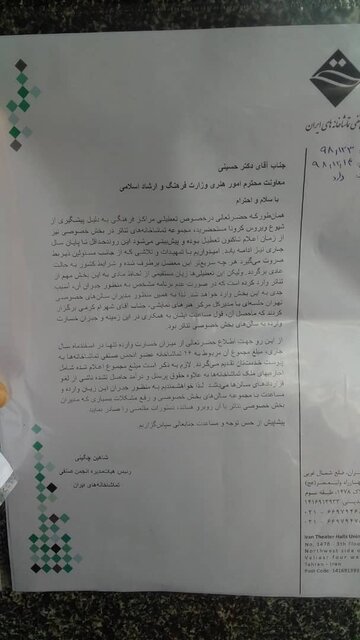 صنفی تماشاخانه‌های ایران
۹۸،۱۲،۱۴
دارد
جناب آقای دکتر حسینی
معاونت محترم امور هنری وزارت فرهنگ و ارشاد اسلامی
با سلام و احترام
همان‌طورکه حضرتعالی درخصوص تعطیلی مراکز فرهنگی به دلیل پیشگیری از
شیوع ویروس کرونا مستحضرید، مجموعه تماشاخانه‌های تئاتر در بخش خصوصی نیز
از زمان اعلام تاکنون تعطیل بوده و پیش‌بینی می‌شود این روند حداقل تا پایان سال
جاری نیز ادامه یابد. امیدواریم با تمهیدات و تلاشی که از جانب مسئولین ذیربط
صورت می‌گیرد هر چه سریع‌تر این معضل برطرف شده و شرایط کشور به حالت
عادی برگردد. ولیکن این تعطیلی‌ها زیان مستقیمی از لحاظ مادی به این بخش مهم از
تئاتر وارد کرده است که در صورت عدم برنامه مشخص به منظور جبران آن، آسیب
جدی به این بخش وارد خواهد شد. لذا به همین منظور مدیران سالن‌های خصوصی
تهران جلسه‌ای با مدیرکل مرکز هنرهای نمایشی، جناب آقای شهرام کرمی برگزار
کردند که ماحصل آن، قول مساعدت ایشان به همکاری در این زمینه و جبران خسارت
وارده به سالن‌های بخش خصوصی تئاتر بود.
از این رو جهت اطلاع حضرتعالی از میزان خسارت وارده تنها در اسفندماه سال
جاری، مبلغ مجموع آن مربوط به ۲۴ تماشاخانه عضو انجمن صنفی تماشاخانه‌ها به
پیوست خدمتتان تقدیم می‌گردد. لازم به ذکر است مبلغ مجموع اعلام شده شامل
اجاره‌بهای ملک تماشاخانه‌ها به علاوه حقوق پرسنل و درآمد حاصل نشده ناشی از لغو
قراردادهای سالن‌ها می‌باشد. لذا خواهشمندیم به منظور جبران این زیان وارده و
مساعدت به مجموعه سالن‌های بخش خصوصی و رفع مشکلات بسیاری که مدیران
بخش خصوصی تئاتر با آن روبرو هستند، دستورات مقتضی را صادر نمایید.
پیشاپیش از حسن توجه و مساعدت جنابعالی سپاسگزاریم.
شاهین چگینی
رئیس هیات‌مدیره انجمن صنفی
تماشاخانه‌های تهران
ضلع شمال غربی
طبقه سوم
Iran Theater Halls Union
No. 1478 . 5th Floor
Northwest side of
Valiasr four way
Tehran - Iran
Post Code: